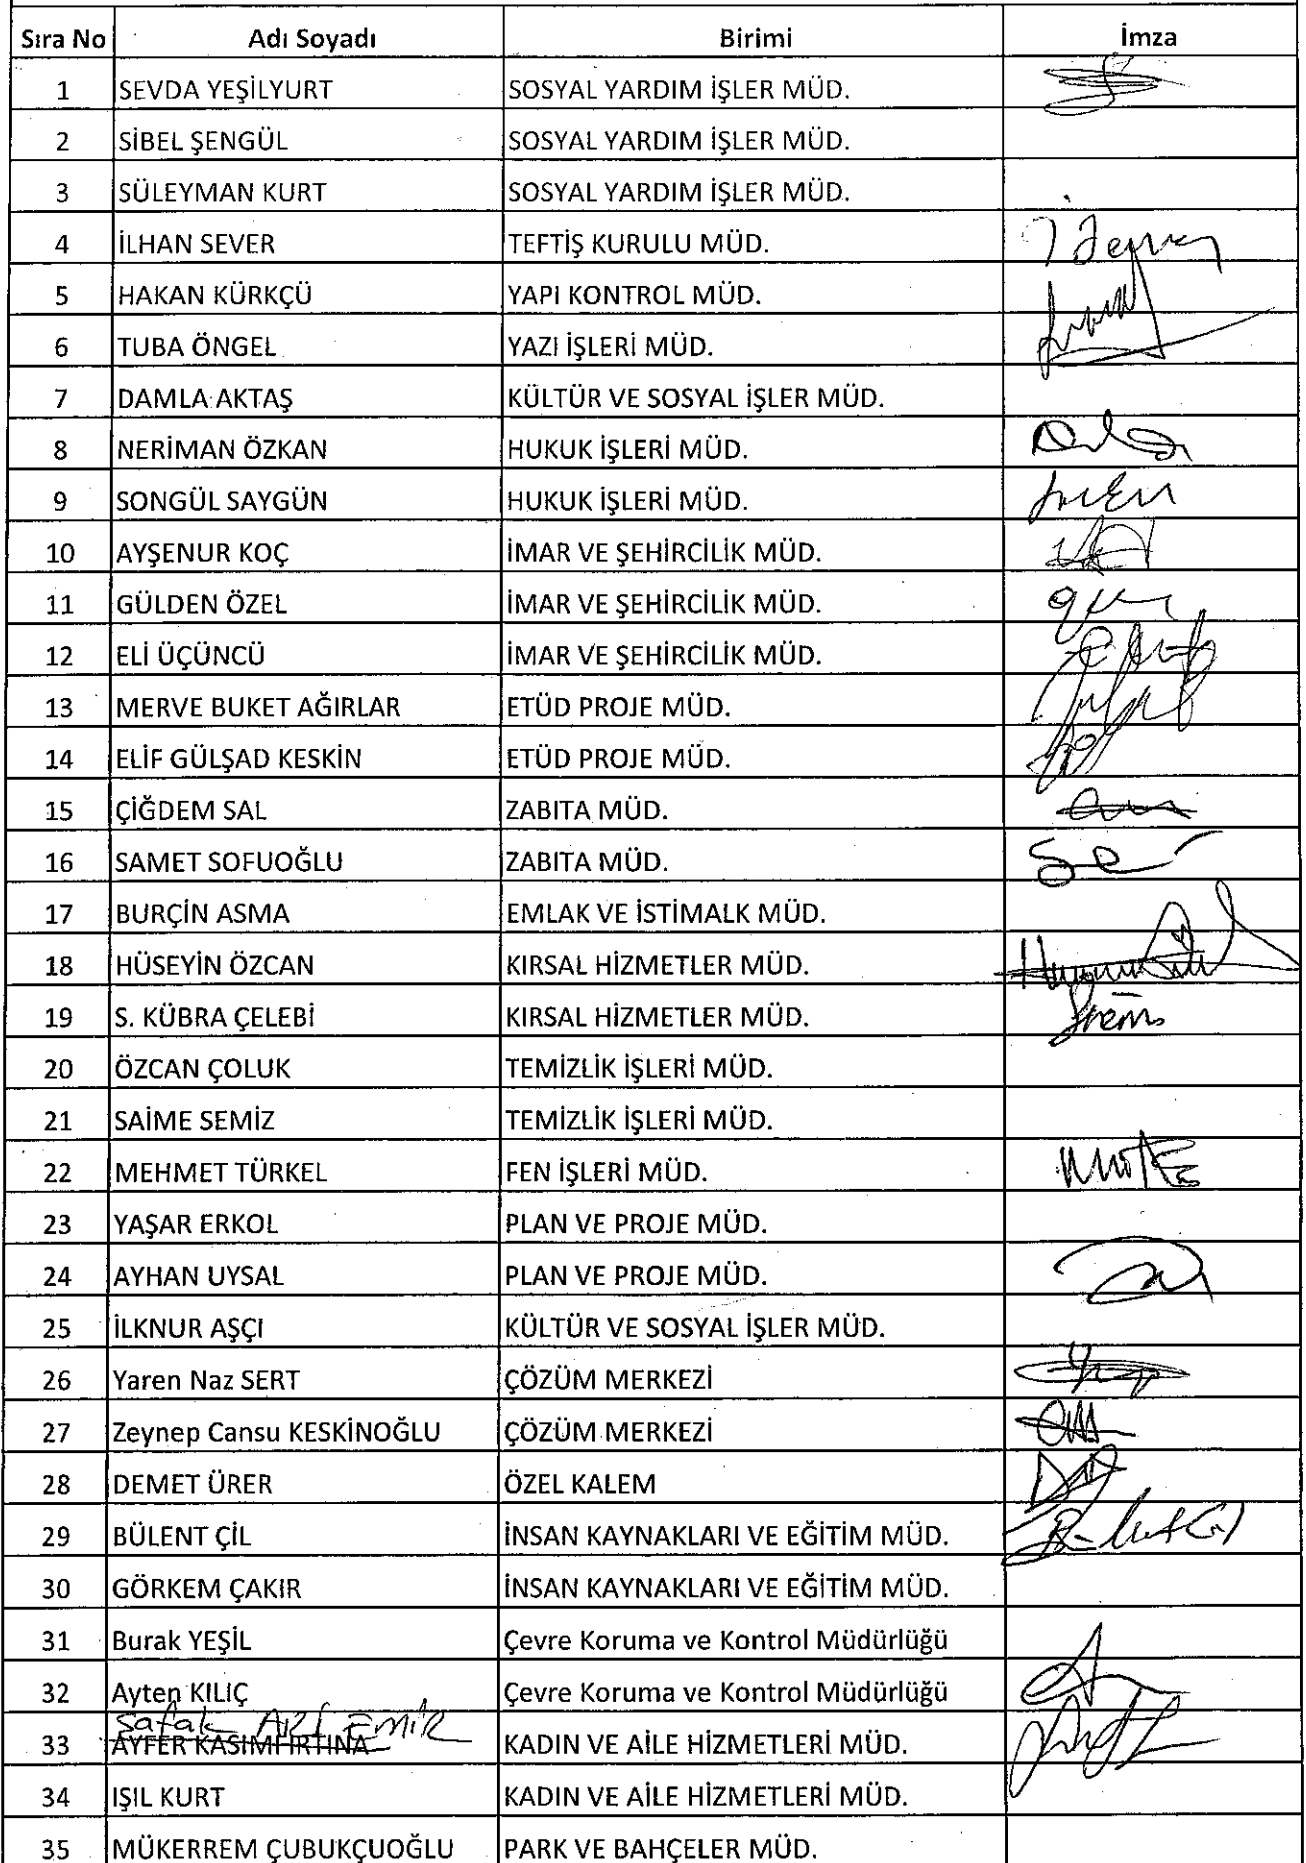 Sıra No Adı Soyadı Birimi İmza
1 SEVDA YEŞİLYURT SOSYAL YARDIM İŞLER MÜD.
2 SİBEL ŞENGÜL SOSYAL YARDIM İŞLER MÜD.
3 SÜLEYMAN KURT SOSYAL YARDIM İŞLER MÜD.
4 İLHAN SEVER TEFTİŞ KURULU MÜD.
5 HAKAN KÜRKÇÜ YAPI KONTROL MÜD.
6 TUBA ÖNGEL YAZI İŞLERİ MÜD.
7 DAMLA AKTAŞ KÜLTÜR VE SOSYAL İŞLER MÜD.
8 NERİMAN ÖZKAN HUKUK İŞLERİ MÜD.
9 SONGÜL SAYGÜN HUKUK İŞLERİ MÜD.
10 AYŞENUR KOÇ İMAR VE ŞEHİRCİLİK MÜD.
11 GÜLDEN ÖZEL İMAR VE ŞEHİRCİLİK MÜD.
12 ELİ ÜÇÜNCÜ İMAR VE ŞEHİRCİLİK MÜD.
13 MERVE BUKET AĞIRLAR ETÜD PROJE MÜD.
14 ELİF GÜLŞAD KESKİN ETÜD PROJE MÜD.
15 ÇİĞDEM SAL ZABITA MÜD.
16 SAMET SOFUOĞLU ZABITA MÜD.
17 BURÇİN ASMA EMLAK VE İSTİMALK MÜD.
18 HÜSEYİN ÖZCAN KIRSAL HİZMETLER MÜD.
19 S. KÜBRA ÇELEBİ KIRSAL HİZMETLER MÜD.
20 ÖZCAN ÇOLUK TEMİZLİK İŞLERİ MÜD.
21 SAİME SEMİZ TEMİZLİK İŞLERİ MÜD.
22 MEHMET TÜRKEL FEN İŞLERİ MÜD.
23 YAŞAR ERKOL PLAN VE PROJE MÜD.
24 AYHAN UYSAL PLAN VE PROJE MÜD.
25 İLKNUR AŞÇI KÜLTÜR VE SOSYAL İŞLER MÜD.
26 Yaren Naz SERT ÇÖZÜM MERKEZİ
27 Zeynep Cansu KESKİNOĞLU ÇÖZÜM MERKEZİ
28 DEMET ÜRER ÖZEL KALEM
29 BÜLENT ÇİL İNSAN KAYNAKLARI VE EĞİTİM MÜD.
30 GÖRKEM ÇAKIR İNSAN KAYNAKLARI VE EĞİTİM MÜD.
31 Burak YEŞİL Çevre Koruma ve Kontrol Müdürlüğü
32 Ayten KILIÇ Çevre Koruma ve Kontrol Müdürlüğü
Safak ARI EMİR
33 AYFER KASIMFIRTINA KADIN VE AİLE HİZMETLERİ MÜD.
34 IŞIL KURT KADIN VE AİLE HİZMETLERİ MÜD.
35 MÜKERREM ÇUBUKÇUOĞLU PARK VE BAHÇELER MÜD.